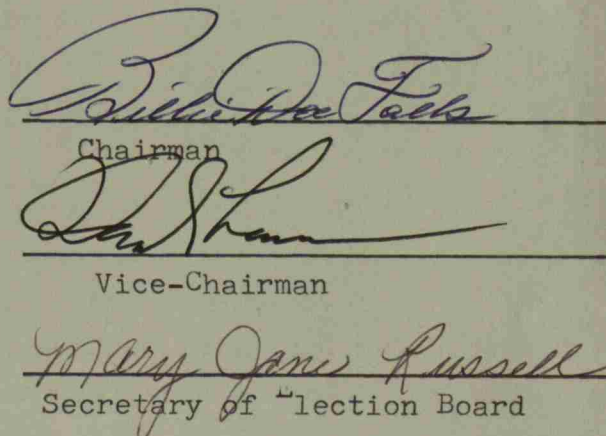 Billie Dee Falls
Chairman
Vice-Chairman
Mary Jane Russell
Secretary of Election Board